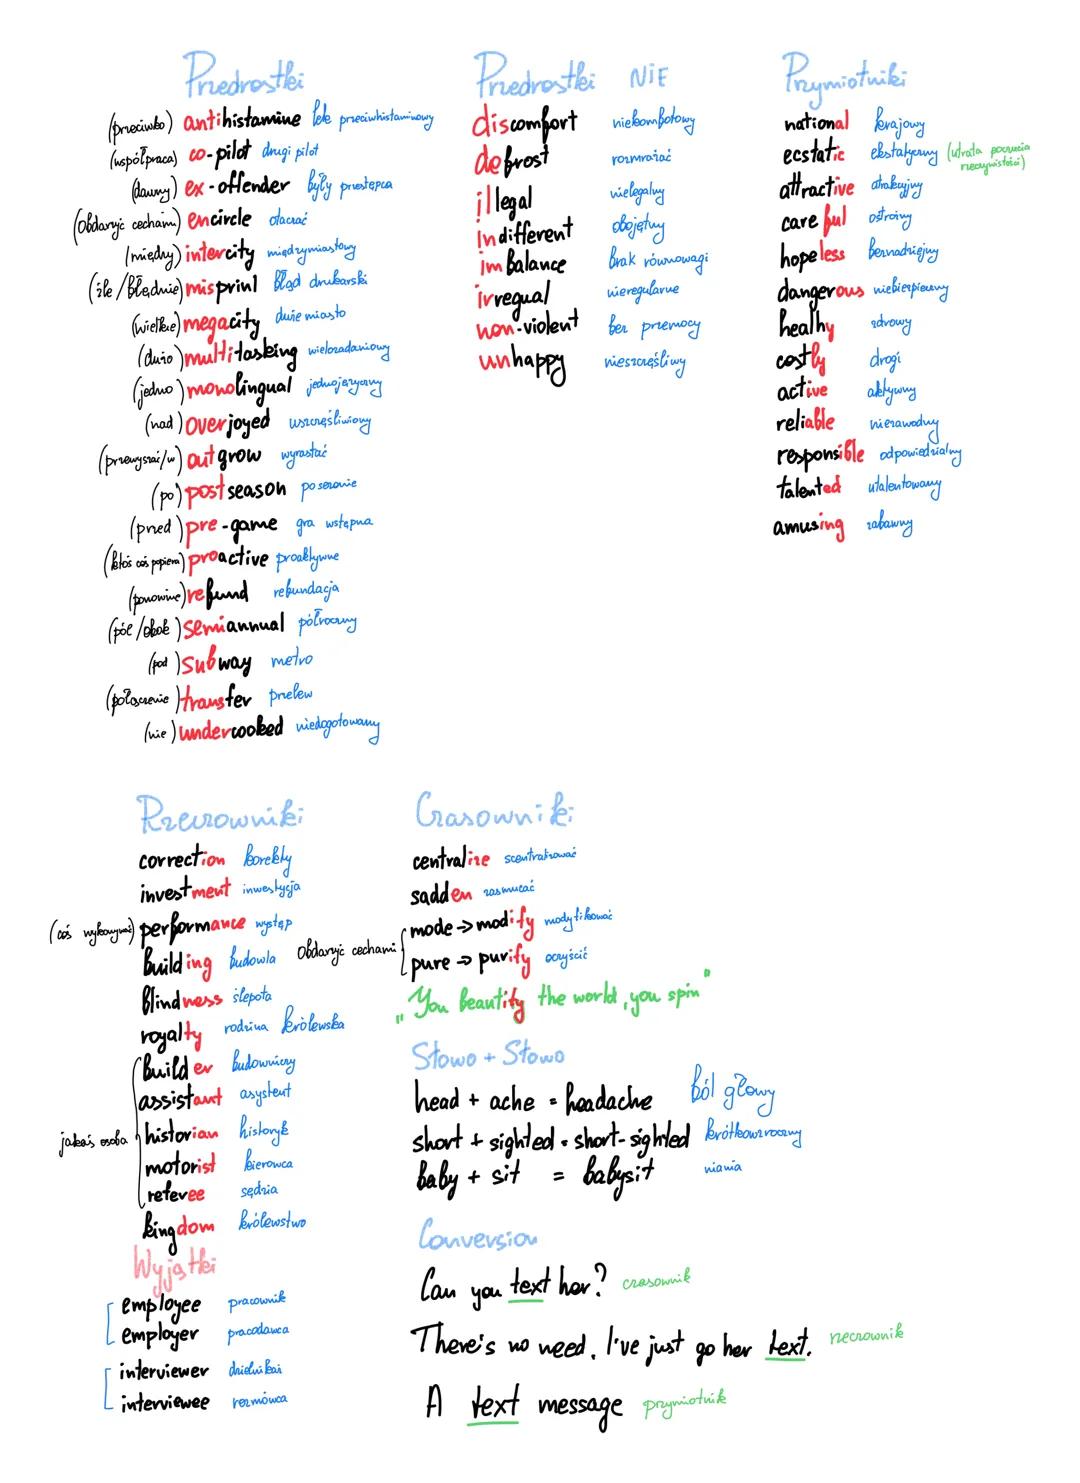 Przedrostki
(przeciwko) antihistamine lek przeciwhistaminowy
(współpraca) co-pilot drugi pilot
(dawny) ex-offender były przestępca
(Obdarzyć cechami) encircle otaczać
(między) intercity międzymiastowy
(źle/błędnie) misprint błąd drukarski
(wielkie) megacity duże miasto
(dużo) multitasking wielozadaniowy
(jedno) monolingual jednojęzyczny
(nad) overjoyed uszczęśliwiony
(przewyższać/w) outgrow wyrastać
(po) postseason po sezonie
(przed) pre-game gra wstępna
(ktoś coś popiera) proactive proaktywne
(ponownie) refund refundacja
(pół/obok) semiannual półroczny
(pod) subway metro
(połączenie) transfer przelew
(nie) undercooked niedogotowany
Przedrostki NIE
discomfort niekomfotowy
defrost rozmrażać
illegal nielegalny
indifferent obojętny
imbalance brak równowagi
irregual nieregularne
non-violent bez przemocy
unhappy nieszczęśliwy
Przymiotniki
national krajowy
ecstatic ekstatyczny (utrata poczucia rzeczywistości)
attractive atrakcyjny
careful ostrożny
hopeless beznadziejny
dangerous niebezpieczny
healhy zdrowy
costly drogi
active aktywny
reliable niezawodny
responsible odpowiedzialny
talented utalentowany
amusing zabawny
Rzeczowniki
correction korekty
investment inwestycja
(coś wykonywać) performance występ
building budowla
blindness ślepota
royalty rodzina królewska
jakaś osoba
builder budowniczy
assistant asystent
historian historyk
motorist kierowca
referee sędzia
kingdom królewstwo
Wyjątki
employee pracownik
employer pracodawca
interviewer dzielnikaż
interviewee rozmówca
Czasowniki
centralize scentralizować
sadden zasmucać
Obdarzyć cechami
mode → modify modyfikować
pure → purify oczyścić
"You beautify the world, you spin"
Słowo + Słowo
head + ache = headache ból głowy
short + sighted = short-sighted krótkowzroczny
baby + sit = babysit niania
Conversion
Can you text her? czasownik
There's no need, I've just go her text. rzeczownik
A text message przymiotnik